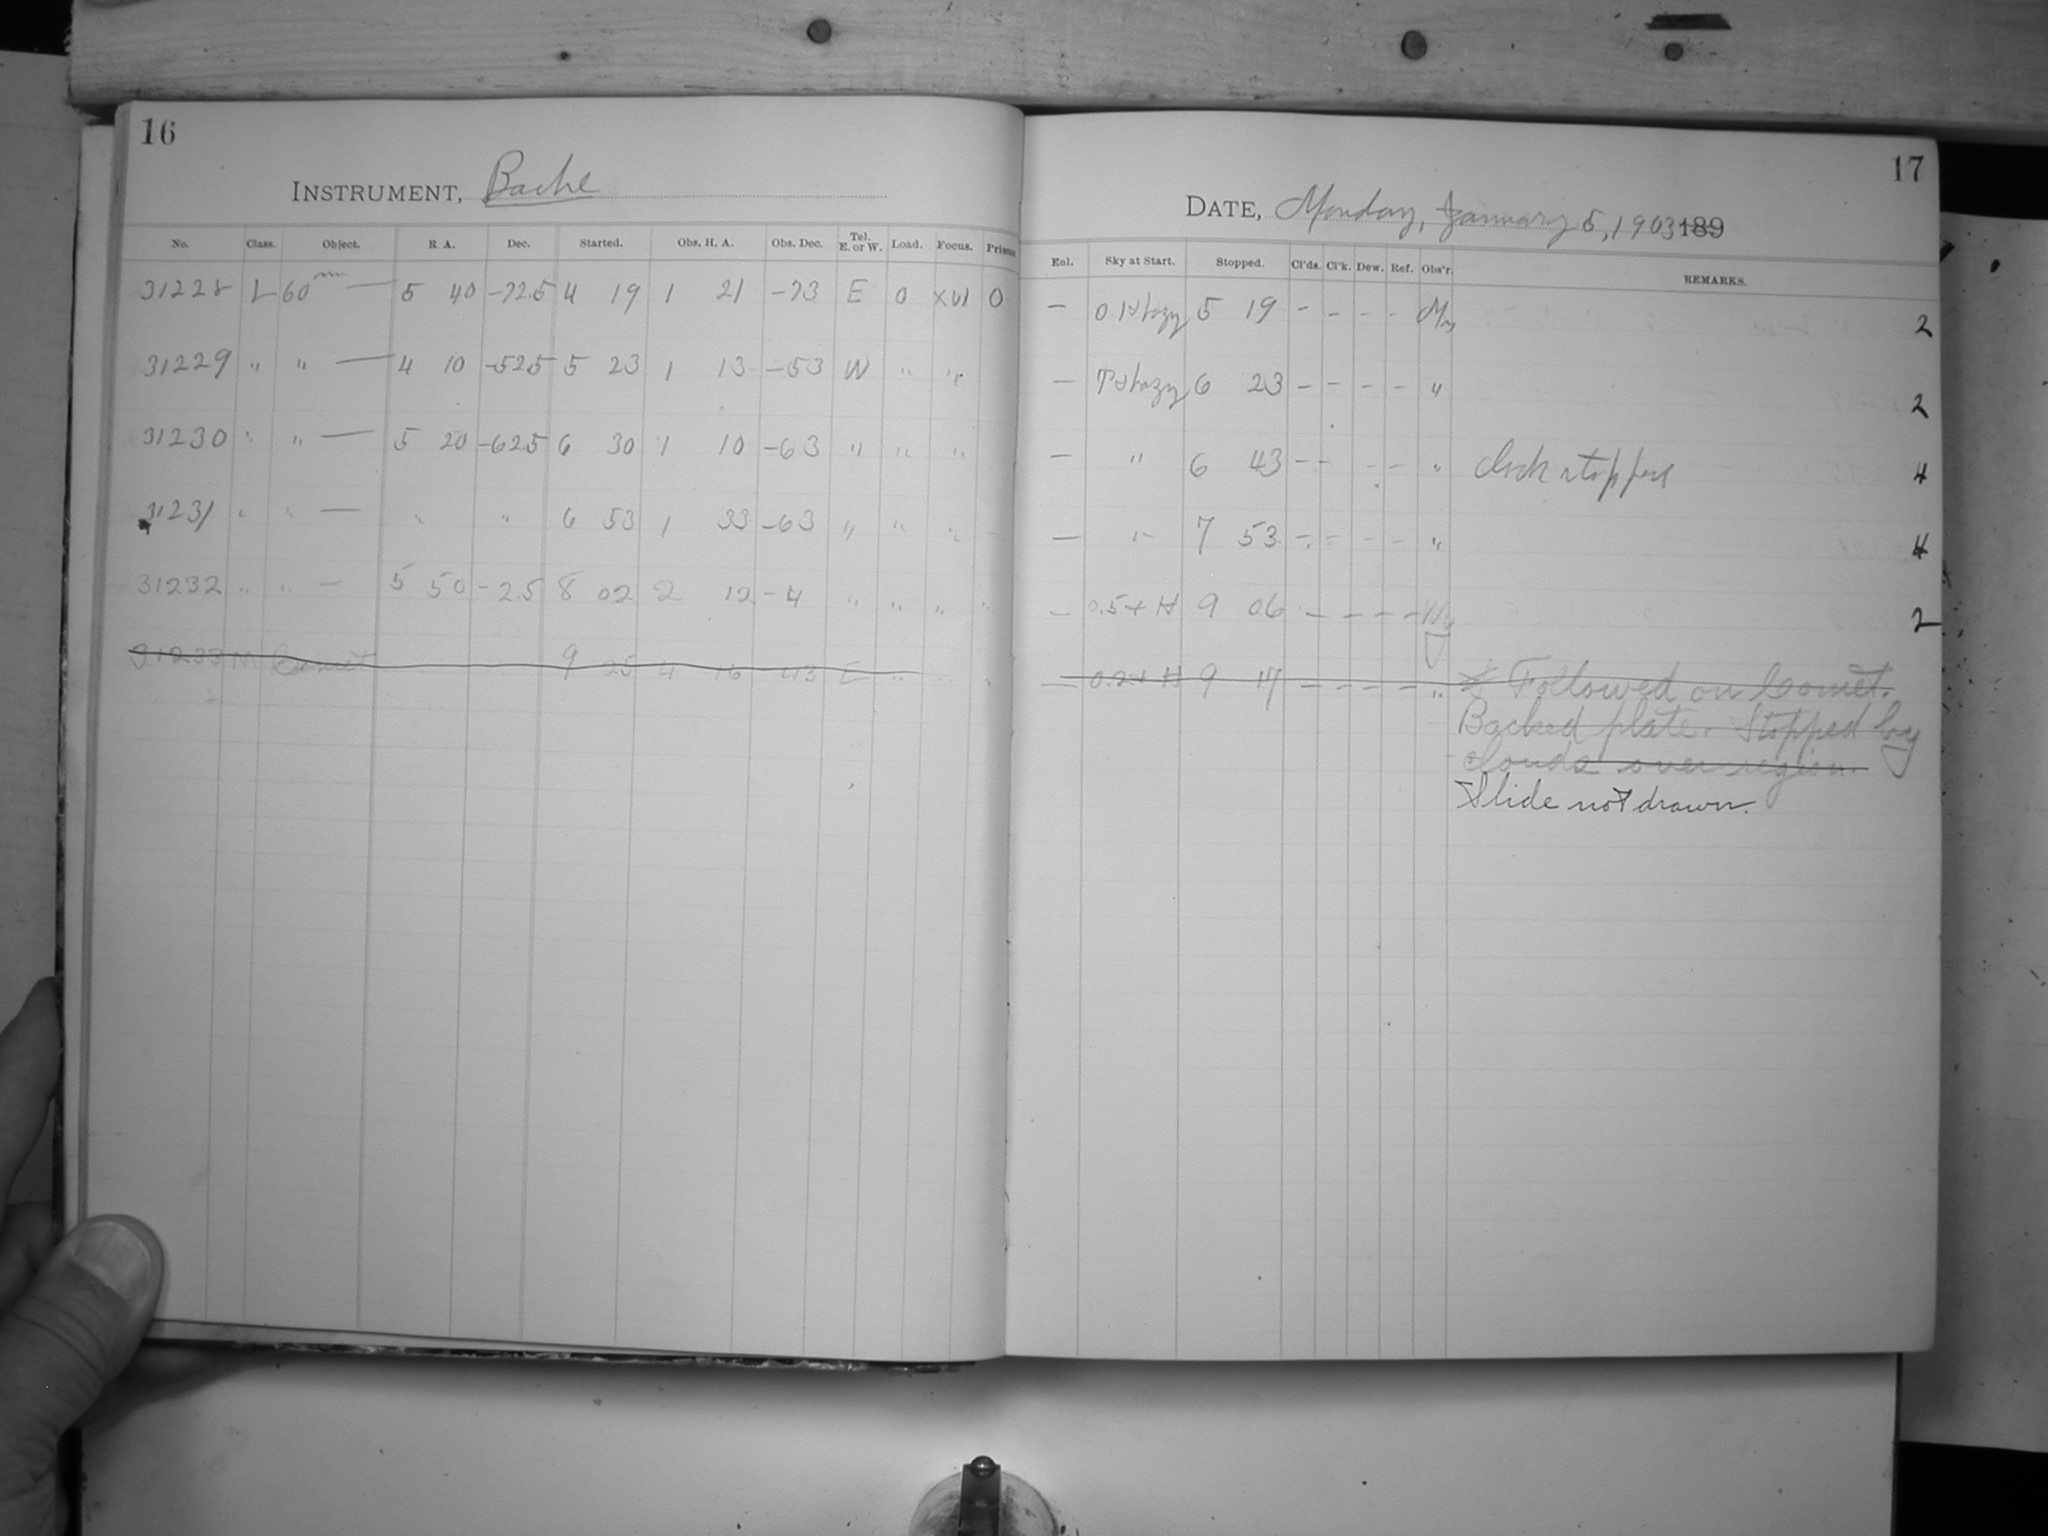 16
INSTRUMENT, Bache
No. Class. Object. R A. Dec. Started. Obs. H. A. Obs. Dec. Tel. E. or W. Load. Focus. Prisms.
31228 L 60 m — 5 40 -72.5 4 19 1 21 -73 E 0 0
31229 " " — 4 10 -52.5 5 23 1 13 -53 W " "
31230 " " — 5 20 -62.5 6 30 1 10 -63 " " "
31231 " " — " " 6 53 1 33 -63 " " "
31232 " " — 5 50 -2.5 8 02 2 12 -4 " " " "
31233 M Comet 9 25 4 16 -43 E " " "
17
DATE, Monday, January 5, 1903 189
Enl. Sky at Start. Stopped. Cl'ds. Cl'k. Dew. Ref. Obs'r. REMARKS.
— 5 19 - - - - 2
— 6 23 - - - - " 2
— " 6 43 - - - - " Clock stopped 4
— " 7 53 - - - - " 4
— 0.5 + H 9 06 - - - - 2
— 0.2 + H 9 17 - - - - " Followed on Comet.
Backed plate. Stopped by
clouds over region.
Slide not drawn.